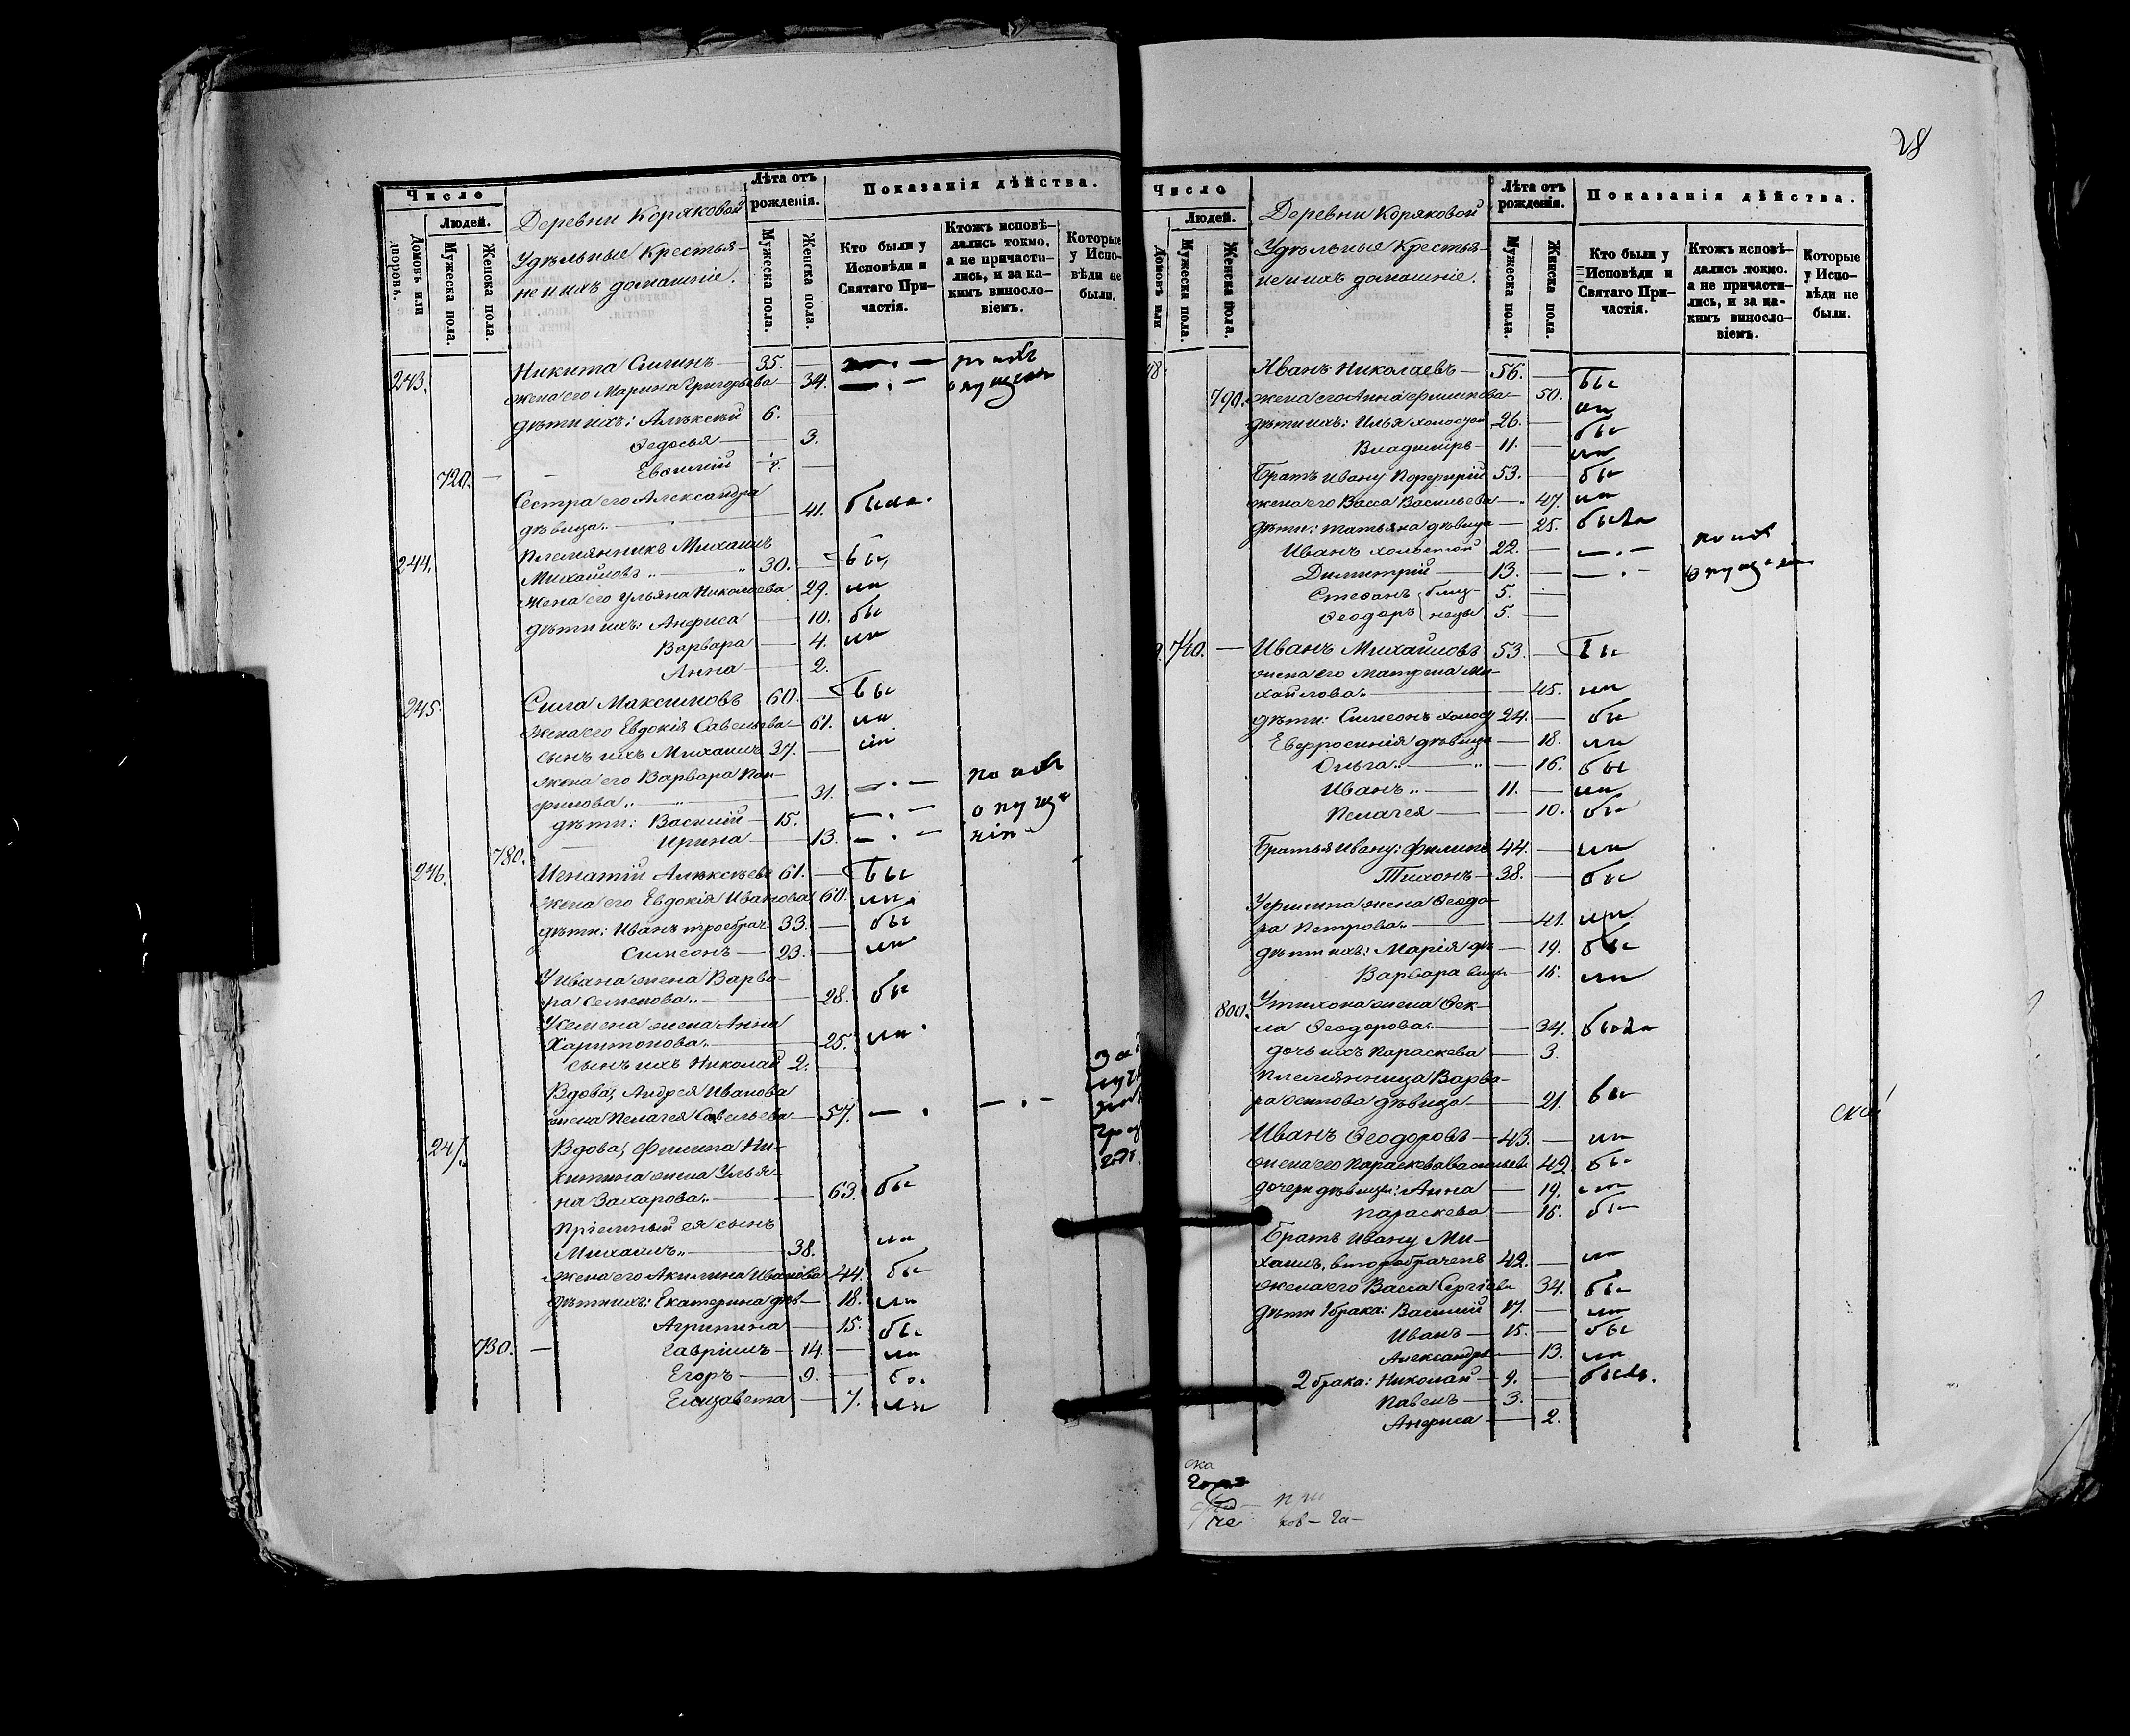 28
Число
Людей.
Домовъ или дворовъ.
Мужеска пола.
Женска пола.
Деревни Коряковой
Удѣльные Крестья-
не и ихъ домашніе.
Лѣта отъ рожденія.
Мужеска пола.
Женска пола.
Показанія дѣйства.
Кто были у Исповѣди и Святаго При-частія.
Ктожъ исповѣ-дались токмо, а не причасти-лись, и за ка-кимъ винословіемъ.
Которые у Испо-вѣди не были.
243. Никита Силинъ 35.
жена его Марина Григорьева 34.
дѣти ихъ: Алѣксѣй 6.
Ѳедосья 3.
720. Евсимій
Сестра его Александра
дѣвица 41. была.
244. Племянникъ Михаилъ
Михайловъ 30. бы
жена его Ульяна Николаева 29. ли
дѣти ихъ: Анфиса 10. бы
Варвара 4. ли
Анна 2.
245. Сила Максимовъ 60. бы
жена его Евдокія Савельева 61. ли
сынъ ихъ Михаилъ 37.
жена его Варвара Пан-
филова 31.
дѣти: Василій 15.
780. Ирина 13.
246. Игнатій Алѣксѣевъ 61. бы
жена его Евдокія Иванова 60. ли
дѣти: Иванъ троебрач 33. бы
Симеонъ 23. ли
У Ивана жена Варва-
ра Семенова 28. бы
У Семена жена Анна
Харитонова 25. ли
сынъ ихъ Николай 2.
Вдова, Андрея Иванова
жена Пелагея Савельева 57.
247. Вдова, Филипа Ни-
китина жена Улья-
на Захарова 63. бы
Пріемный ея сынъ
Михаилъ 38. ли
жена его Акилина Иванова 44. бы
дѣти ихъ: Екатерина дѣв 18. ли
Агрипина 15. бы
730. Гавріилъ 14. ли
Егоръ 9. бы
Елизавета 7. ли
Число
Людей.
Домовъ или
Мужеска пола.
Женска пола.
Деревни Коряковой
Удѣльные Крестья-
не и ихъ домашніе.
Лѣта отъ рожденія.
Мужеска пола.
Женска пола.
Показанія дѣйства.
Кто были у Исповѣди и Святаго При-частія.
Ктожъ исповѣ-дались токмо. а не причасти-лись, и за ка-кимъ винословіемъ.
Которые у Испо-вѣди не были.
48 Иванъ Николаевъ 56. бы
790. жена его Анна Филипова 50. ли
дѣти ихъ: Илья холостой 26. бы
Владимиръ 11. ли
Братъ Ивану Порфирій 53. бы
жена его Васса Васильева 47. ли
дѣти: Татьяна дѣвица 25. была
Иванъ холостой 22.
Димитрій 13.
Стефанъ близ- 5.
Ѳеодоръ нецы 5.
9. 740. Иванъ Михаиловъ 53. бы
жена его Матрена Ми-
хайлова 45. ли
дѣти: Симеонъ холост 24. бы
Евфросинія дѣвица 18. ли
Ольга 16. бы
Иванъ 11. ли
Пелагея 10. бы
Братья Ивану: Филипъ 44. ли
Тихонъ 38. бы
У Филипа жена Ѳеодо-
ра Петрова 41. ли
дѣти ихъ: Марія дѣ- 19. бы
Варвара вицы 15. ли
800. У Тихона жена Ѳек-
ла Ѳеодорова 34. была
дочь ихъ Параскева 3.
Племянница Варва-
ра Осипова дѣвица 21. бы
Иванъ Ѳеодоровъ 43. ли
жена его Параскева Васильева 42. бы
дочери дѣвицы: Анна 19. ли
Параскева 15. бы
Братъ Ивану Ми-
хаилъ, второбраченъ 42. ли
жена его Васса Сергіева 34. бы
дѣти 1 брака: Василій 17. ли
Иванъ 15. бы
Александра 13. ли
2 брака: Николай 9. былъ.
Павелъ 3.
Анфиса 2.